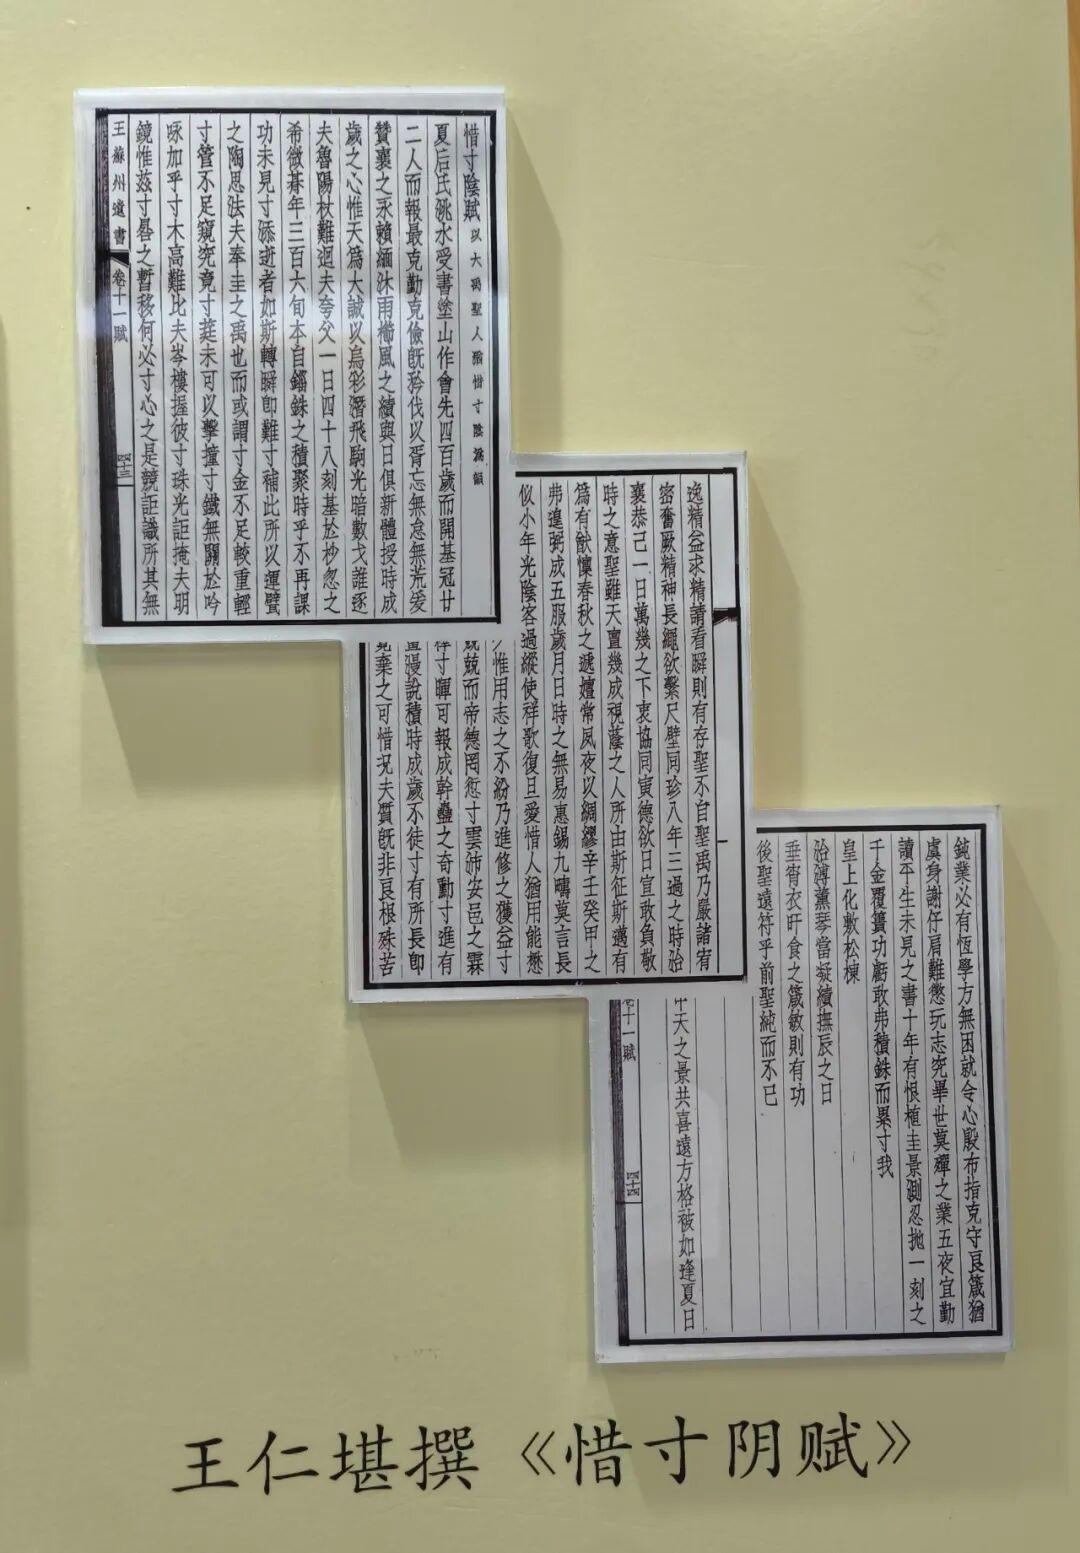 惜寸陰賦以大禹聖人猶惜寸陰為韻
夏后氏洮水受書塗山作會先四百歲而開基冠廿
二人而報最克勤克儉既矜伐以胥忘無怠無荒爰
贊襄之永賴緬沐雨櫛風之績與日俱新體授時成
歲之心惟天爲大誠以烏彩潛飛駒光暗數戈誰逐
夫魯陽杖難迴夫夸父一日四十八刻基於杪忽之
希微朞年三百六旬本自錙銖之積聚時乎不再課
功未見寸添逝者如斯轉瞬卽難寸補此所以運甓
之陶思法夫奉圭之禹也而或謂寸金不足較重輕
寸管不足窺究竟寸莛未可以擊撞寸鐵無關於吟
咏加乎寸木高難比夫岑樓握彼寸珠光詎掩夫明
鏡惟兹寸晷之暫移何必寸心之是競詎識所其無
王蘇州遺書 卷十一賦 四十三
逸精益求精請看瞬則有存聖不自聖禹乃嚴諸宥
密奮厥精神長繩欲繫尺璧同珍八年三過之時治
襄恭己一日萬幾之下衷協同寅德欲日宣敢負敬
時之意聖雖天亶幾成視蔭之人所由斯征斯邁有
爲有猷懍春秋之遞嬗常夙夜以綢繆辛壬癸甲之
弗遑弼成五服歲月日時之無易惠錫九疇莫言長
似小年光陰客過縱使祥歌復旦愛惜人猶用能懋
惟用志之不紛乃進修之獲益寸
兢兢而帝德罔愆寸雲沛安邑之霖
寸暉可報成幹蠱之奇勳寸進有
漫說積時成歲不徒寸有所長卽
棄之可惜况夫質旣非良根殊苦
鈍業必有恆學方無困就令心殷布指克守良箴猶
虞身謝仔肩難懲玩志究畢世莫殫之業五夜宜勤
讀平生未見之書十年有恨植圭景測忍抛一刻之
千金覆簣功虧敢弗積銖而累寸我
皇上化敷松棟
治溥薰琴當凝績撫辰之日
垂宵衣旰食之箴敏則有功
後聖遠符乎前聖純而不已
中天之景共喜遠方格被如逢夏日
十一賦 四十四
王仁堪撰《惜寸阴赋》